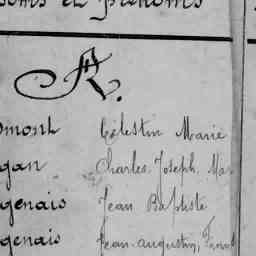 Noms et prénoms
A.
omont Célestin Marie
gan Charles, Joseph, Mar
genais Jean Baptiste
genais Jean-augustin,